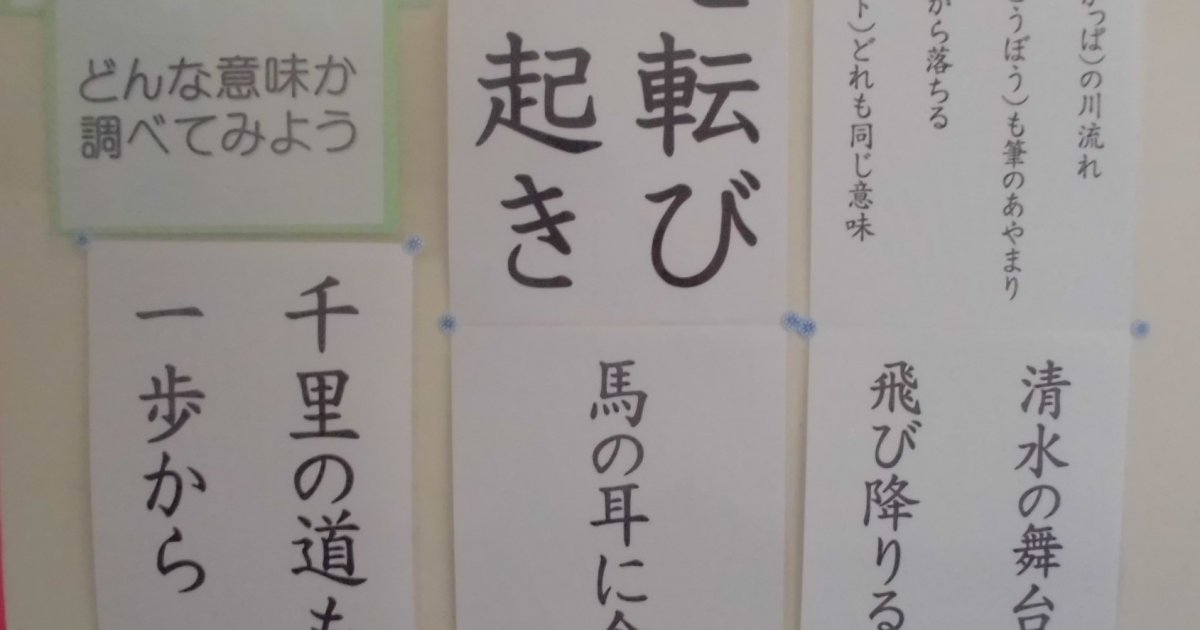 どんな意味か
調べてみよう
転び
起き
っぱ）の川流れ
うぼう）も筆のあやまり
から落ちる
ト）どれも同じ意味
清水の舞台
飛び降りる
馬の耳に
千里の道も
一歩から